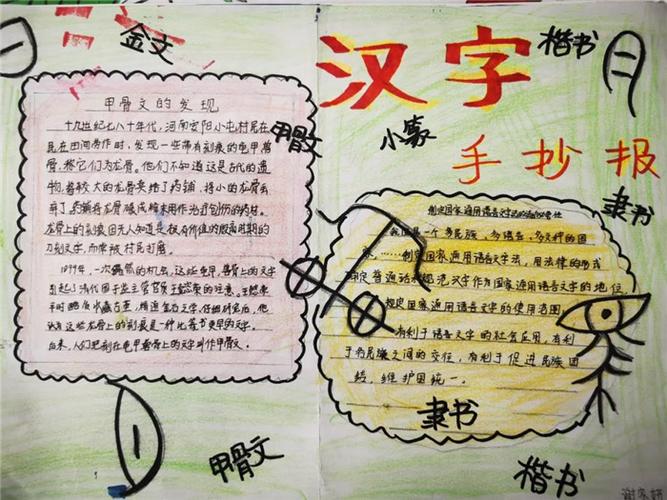 金文
汉字
楷书
小篆
手抄报
隶书
甲骨文
甲骨文的发现
十九世纪七八十年代,河南安阳小屯村民在
在田间劳作时,发现一些带有刻痕的龟甲兽
骨,称它们为龙骨。他们不知道这是古代的遗
物,将较大的龙骨卖给了药铺,
龙骨上的刻痕但无人知道是极有价值的殷商时期的
刻文字,而常被村民刮磨。
1899年,一次偶然的机会,这些龟甲、兽骨上的文字
引起了清代国子监主管官员王懿荣的注意。
认为这些龙骨上的刻是一种比篆书更早的文字。
后来,人们把刻在龟甲兽骨上的文字叫作甲骨文。
制定国家通用语言文字法的
我国是一个多民族,多语言,多文种的国
家……制定国家通用语言文字法,用法律的形式
确定普通话和规范汉字作为国家通用语言文字的地位
规定国家通用语言文字的使用范围
有利于语言文字的社会应用,有利
于各民族之间的交往,有利于促进民族团
结,维护国家统一。
隶书
甲骨文
楷书